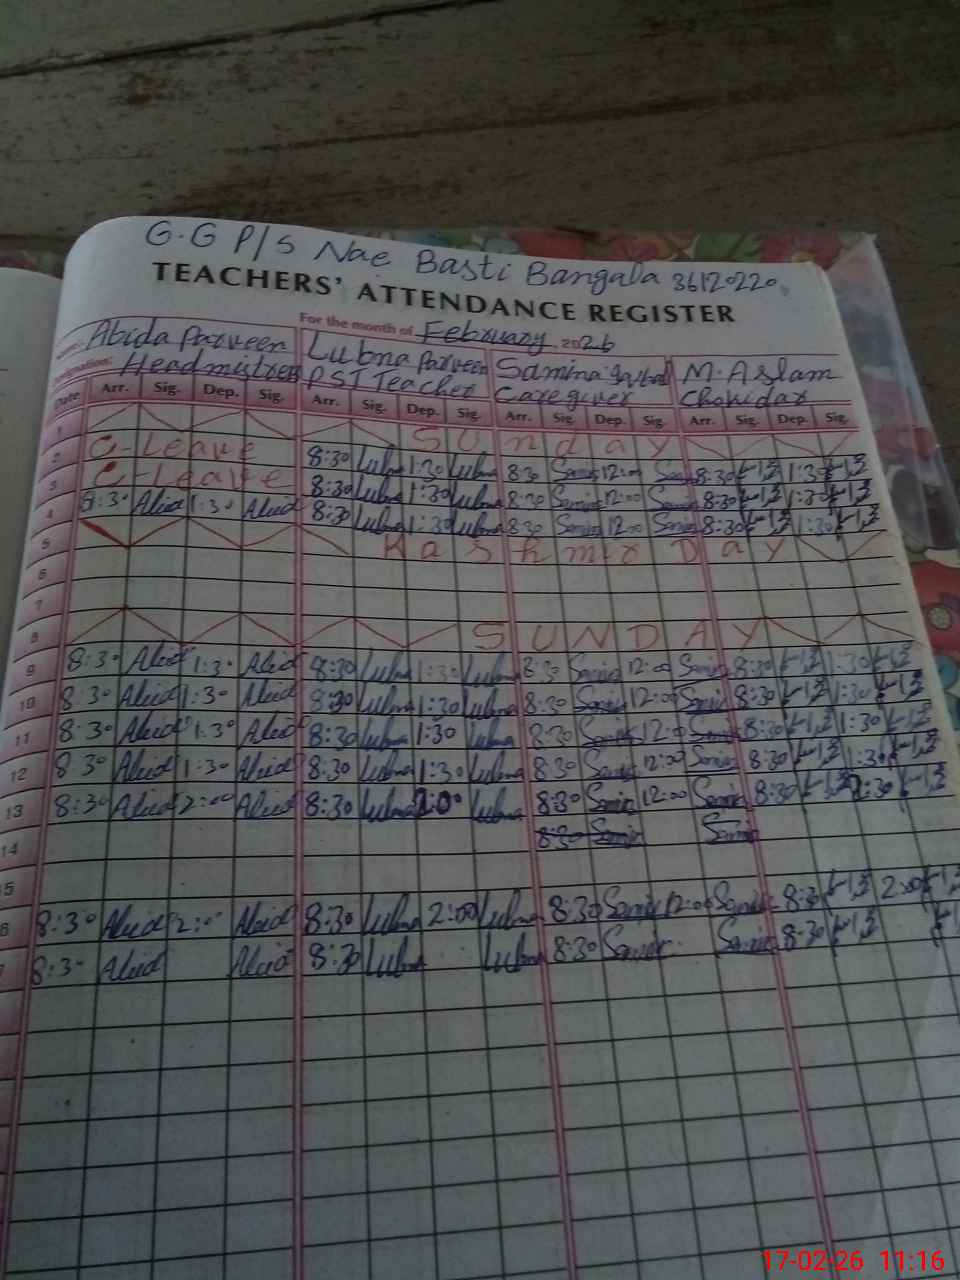 G.G P/S Nae Basti Bangala 36120220
TEACHERS' ATTENDANCE REGISTER
For the month of February 2026
Abida Parveen Lubna Parveen Samina M. Aslam
Designation: Headmistress PST Teacher Caregiver Chokidar
Date Arr. Sig. Dep. Sig. Arr. Sig. Dep. Sig. Arr. Sig. Dep. Sig. Arr. Sig. Dep. Sig.
1 Sunday
2 C-Leave 8:30 Lubna 1:30 Lubna 8:30 Samina 12:00 Samina 8:30 1:30
3 C-Leave 8:30 Lubna 1:30 Lubna 8:30 Samina 12:00 Samina 8:30 1:30
4 8:30 Abid 1:30 Abid 8:30 Lubna 1:30 Lubna 8:30 Samina 12:00 Samina 8:30 1:30
5 Kashmir Day
6
7
8 SUNDAY
9 8:30 Abid 1:30 Abid 8:30 Lubna 1:30 Lubna 8:30 Samina 12:00 Samina 8:30 1:30
10 8:30 Abid 1:30 Abid 8:30 Lubna 1:30 Lubna 8:30 Samina 12:00 Samina 8:30 1:30
11 8:30 Abid 1:30 Abid 8:30 Lubna 1:30 Lubna 8:30 Samina 12:00 Samina 8:30 1:30
12 8:30 Abid 1:30 Abid 8:30 Lubna 1:30 Lubna 8:30 Samina 12:00 Samina 8:30 1:30
13 8:30 Abid 2:00 Abid 8:30 Lubna 2:00 Lubna 8:30 Samina 12:00 Samina 8:30 2:30
14 8:30 Samina Samina
15
16 8:30 Abid 2:00 Abid 8:30 Lubna 2:00 Lubna 8:30 Samina 12:00 Samina 8:30 2:00
8:30 Abid Abid 8:30 Lubna Lubna 8:30 Samina Samina 8:30
17-02-26 11:16